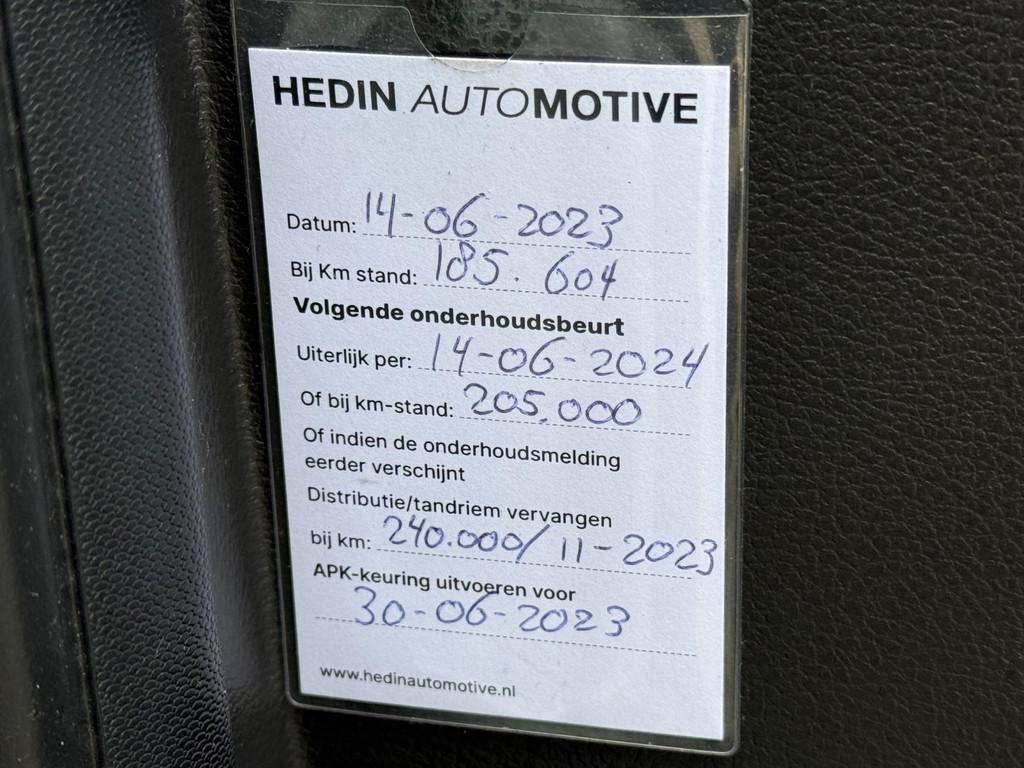 HEDIN AUTOMOTIVE
Datum: 14-06-2023
Bij Km stand: 185.604
Volgende onderhoudsbeurt
Uiterlijk per: 14-06-2024
Of bij km-stand: 205.000
Of indien de onderhoudsmelding
eerder verschijnt
Distributie/tandriem vervangen
bij km: 240.000/11-2023
APK-keuring uitvoeren voor
30-06-2023
www.hedinautomotive.nl